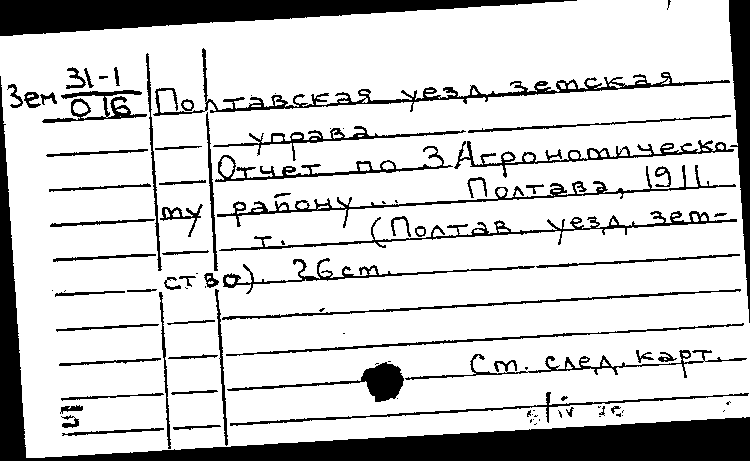 Зем 31-1
О 16
Полтавская уезд. земская
управа.
Отчет по 3 Агрономическо-
му району... Полтава, 1911.
т. (Полтав. уезд. зем-
ство). 26 ст.
Ст. след. карт.
5